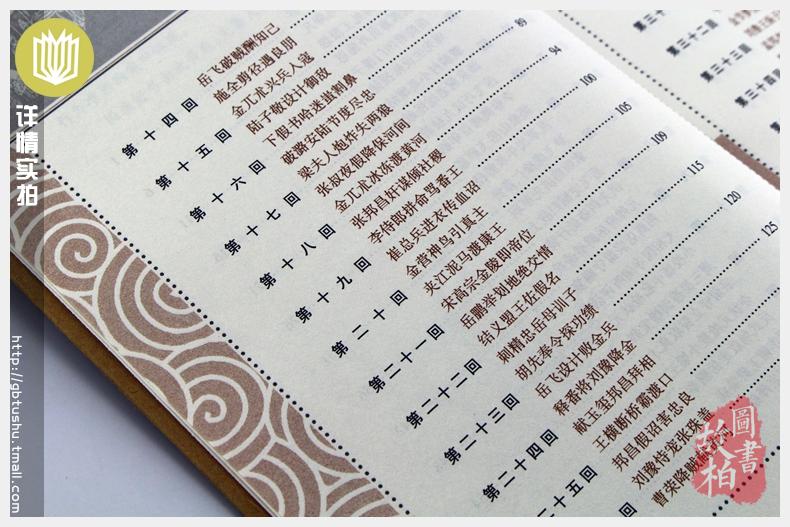 详情实拍
http://gbtushu.tmall.com
第十四回 岳飞破贼酬知己
施全剪径遇良朋 89
第十五回 金兀朮兴兵入寇
陆子敬设计御敌 94
第十六回 下假书哈迷蚩割鼻
破潞安陆节度尽忠 100
第十七回 梁夫人炮炸失两狼
张叔夜假降保河间 105
第十八回 金兀朮冰冻渡黄河
张邦昌奸谋倾社稷 109
第十九回 李侍郎拼命骂番王
崔总兵进衣传血诏 115
第二十回 金营神鸟引真主
夹江泥马渡康王 120
第二十一回 宋高宗金陵即帝位
岳鹏举划地绝交情 125
第二十二回 结义盟王佐假名
刺精忠岳母训子
第二十三回 胡先奉令探功绩
岳飞设计败金兵
第二十四回 释番将刘豫降金
献玉玺邦昌拜相
二十五回 王横断桥霸渡口
邦昌假诏害忠良
回 刘豫恃宠张珠盖
曹荣降贼
第三十
第三十二回
第三十三回
第三十四
故柏圖書